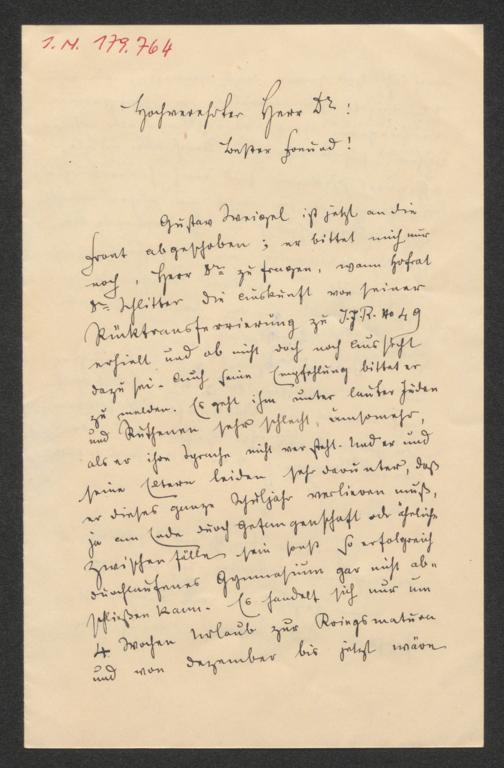 I. N. 179.764
Hochverehrter Herr Dr.!
bester Freund!
Gustav Zweigel ist jetzt an die
Front abgeschoben; er bittet mich nur
noch, Herr Dr. zu fragen, wann Hofrat
Dr. Schlitter die Auskunft von seiner
Rücktransferrierung zu I.J.R. No 49
erhielt und ob nicht doch noch Aussicht
dazu sei. Auch seine Empfehlung bittet er
zu melden. Es geht ihm unter lauter Juden
und Ruthenen sehr schlecht, umsomehr,
als er ihre Sprache nicht versteht. Und er und
seine Eltern leiden sehr darunter, daß
er dieses ganze Schuljahr verlieren muß,
ja am Ende durch Gefangenschaft oder ähnliche
Zwischenfälle sein sonst so erfolgreich
durchlaufenes Gymnasium gar nicht ab-
schließen kann. Es handelt sich nur um
4 Wochen Urlaub zur Kriegsmatura
und von Dezember bis jetzt wäre